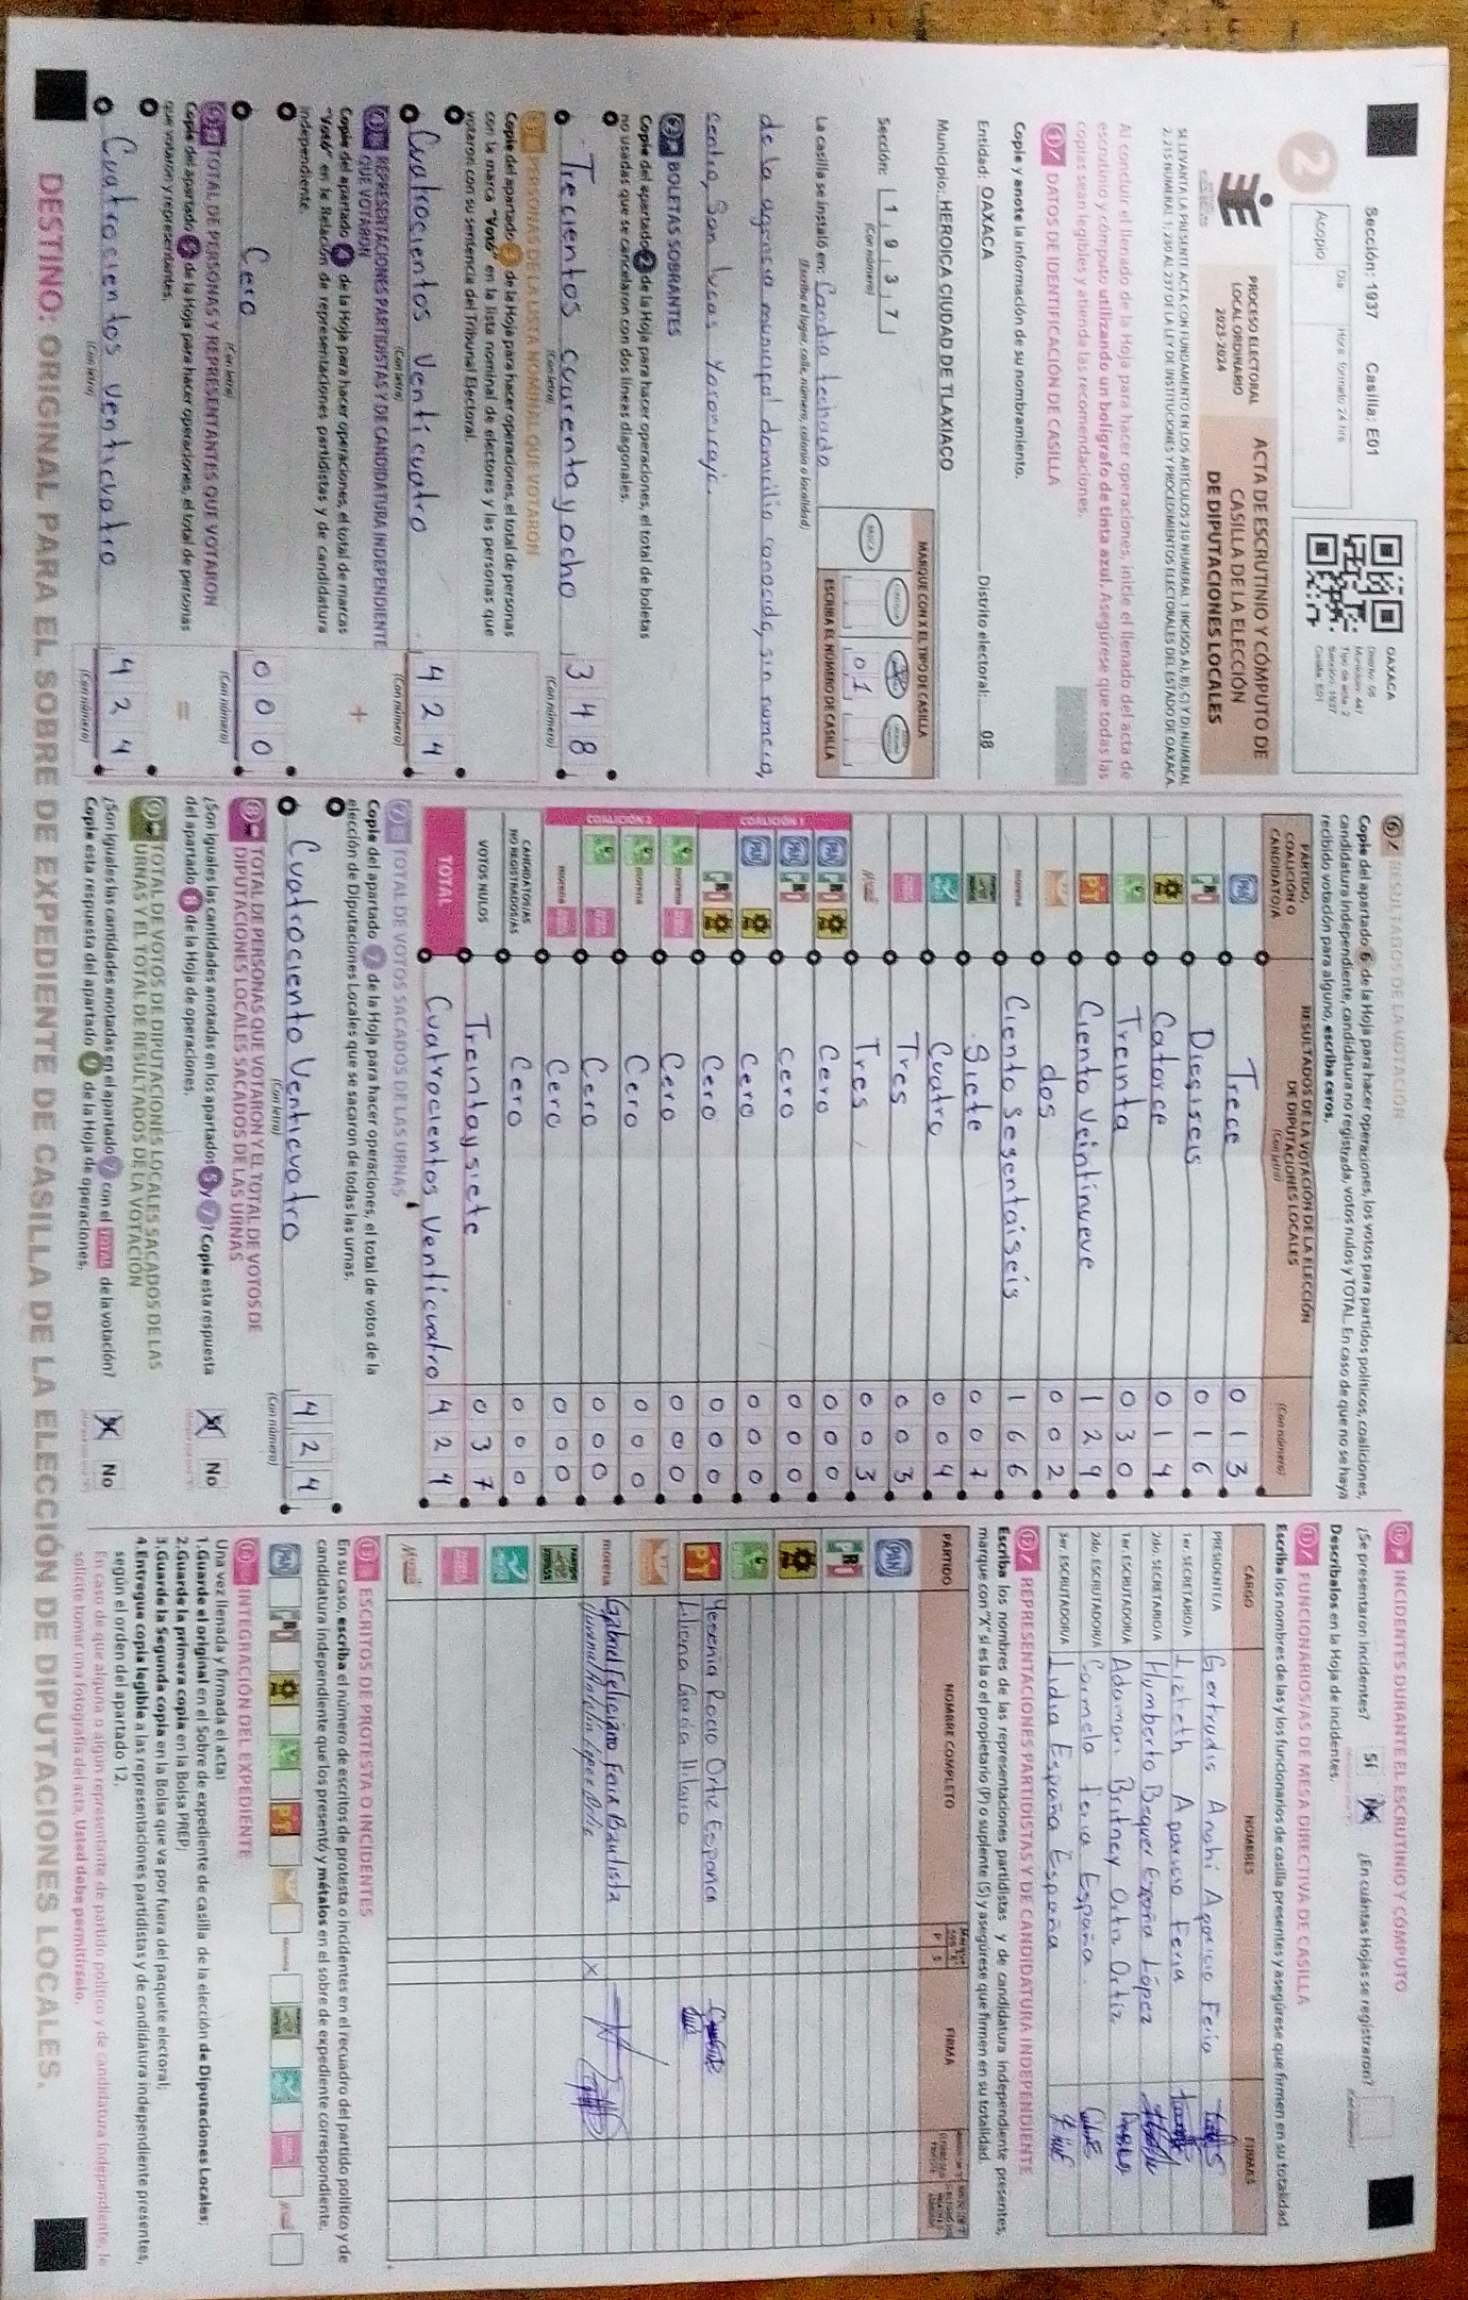 Sección: 1937 Casilla: E01
OAXACA
Distrito: 08
Tipo de acta: 2
Sección: 1937
Casilla: E01
2
Acopio
Día
Hora: formato 24 hrs
PROCESO ELECTORAL
LOCAL ORDINARIO
2023-2024
ACTA DE ESCRUTINIO Y CÓMPUTO DE
CASILLA DE LA ELECCIÓN
DE DIPUTACIONES LOCALES
SE LEVANTA LA PRESENTE ACTA CON FUNDAMENTO EN LOS ARTÍCULOS 219 NUMERAL 1 INCISOS A), B), C) Y D) NUMERAL
2; 215 NUMERAL 1; 230 AL 237 DE LA LEY DE INSTITUCIONES Y PROCEDIMIENTOS ELECTORALES DEL ESTADO DE OAXACA.
Al concluir el llenado de la Hoja para hacer operaciones, inicie el llenado del acta de
escrutinio y cómputo utilizando un bolígrafo de tinta azul. Asegúrese que todas las
copias sean legibles y atienda las recomendaciones.
1 DATOS DE IDENTIFICACIÓN DE CASILLA
Copie y anote la información de su nombramiento.
Entidad: OAXACA Distrito electoral: 08
Municipio: HEROICA CIUDAD DE TLAXIACO
Sección: 1 9 3 7
(Con número)
MARQUE CON X EL TIPO DE CASILLA
BÁSICA
0 1
ESCRIBA EL NÚMERO DE CASILLA
La casilla se instaló en: Cancha techada
(Escriba el lugar, calle, número, colonia o localidad)
de la agencia municipal domicilio conocido, sin numero,
centro, San Lucas Yosonicaje.
2 BOLETAS SOBRANTES
Copie del apartado 2 de la Hoja para hacer operaciones, el total de boletas
no usadas que se cancelaron con dos líneas diagonales.
Trecientos cuarenta y ocho 3 4 8
(Con letra) (Con número)
3 PERSONAS DE LA LISTA NOMINAL QUE VOTARON
Copie del apartado 3 de la Hoja para hacer operaciones, el total de personas
con la marca "Votó" en la lista nominal de electores y las personas que
votaron con su sentencia del Tribunal Electoral.
Cuatrocientos Venticuatro 4 2 4
(Con letra) (Con número)
4 REPRESENTACIONES PARTIDISTAS Y DE CANDIDATURA INDEPENDIENTE
QUE VOTARON
Copie del apartado 4 de la Hoja para hacer operaciones, el total de marcas
"Votó" en la Relación de representaciones partidistas y de candidatura
independiente.
+
Cero 0 0 0
(Con letra) (Con número)
5 TOTAL DE PERSONAS Y REPRESENTANTES QUE VOTARON
Copie del apartado 5 de la Hoja para hacer operaciones, el total de personas
que votaron y representantes.
=
Cuatrocientos Venticuatro 4 2 4
(Con letra) (Con número)
6 RESULTADOS DE LA VOTACIÓN
Copie del apartado 6 de la Hoja para hacer operaciones, los votos para partidos políticos, coaliciones,
candidatura independiente, candidatura no registrada, votos nulos y TOTAL. En caso de que no se haya
recibido votación para alguno, escriba ceros.
PARTIDO,
COALICIÓN O
CANDIDATO/A
RESULTADOS DE LA VOTACIÓN DE LA ELECCIÓN
DE DIPUTACIONES LOCALES
(Con letra)
(Con número)
PAN Trece 0 1 3
PRI Diesiseis 0 1 6
Catorce 0 1 4
Treinta 0 3 0
PT Ciento Veintinueve 1 2 9
dos 0 0 2
morena Ciento Sesentaiseis 1 6 6
Siete 0 0 7
Cuatro 0 0 4
Tres 0 0 3
Mujer Tres 0 0 3
COALICIÓN 1
PAN PRI Cero 0 0 0
PAN PRI Cero 0 0 0
PAN Cero 0 0 0
PRI Cero 0 0 0
COALICIÓN 2
morena Cero 0 0 0
morena Cero 0 0 0
Cero 0 0 0
morena Cero 0 0 0
CANDIDATOS/AS
NO REGISTRADOS/AS Cero 0 0 0
VOTOS NULOS Treinta y siete 0 3 7
TOTAL Cuatrocientos Venticuatro 4 2 4
7 TOTAL DE VOTOS SACADOS DE LAS URNAS
Copie del apartado 7 de la Hoja para hacer operaciones, el total de votos de la
elección de Diputaciones Locales que se sacaron de todas las urnas.
Cuatrociento Venticuatro 4 2 4
(Con letra) (Con número)
8 TOTAL DE PERSONAS QUE VOTARON Y EL TOTAL DE VOTOS DE
DIPUTACIONES LOCALES SACADOS DE LAS URNAS
¿Son iguales las cantidades anotadas en los apartados 5 y 7? Copie esta respuesta
del apartado 8 de la Hoja de operaciones.
No
9 TOTAL DE VOTOS DE DIPUTACIONES LOCALES SACADOS DE LAS
URNAS Y EL TOTAL DE RESULTADOS DE LA VOTACIÓN
¿Son iguales las cantidades anotadas en el apartado 7 con el TOTAL de la votación?
Copie esta respuesta del apartado 9 de la Hoja de operaciones.
No
10 INCIDENTES DURANTE EL ESCRUTINIO Y CÓMPUTO
¿Se presentaron incidentes? Sí No ¿En cuántas Hojas se registraron?
Descríbalos en la Hoja de incidentes.
11 FUNCIONARIOS/AS DE MESA DIRECTIVA DE CASILLA
Escriba los nombres de las y los funcionarios de casilla presentes y asegúrese que firmen en su totalidad
CARGO NOMBRES FIRMAS
PRESIDENTE/A Gertrudis Anahi Aparicio Feria
1er. SECRETARIO/A Lizbeth Aparicio Feria
2do. SECRETARIO/A Humberto Bequer España López
1er. ESCRUTADOR/A Adamari Britney Ortiz Ortiz
2do. ESCRUTADOR/A Carmela Feria España
3er. ESCRUTADOR/A Lidia España España
12 REPRESENTACIONES PARTIDISTAS Y DE CANDIDATURA INDEPENDIENTE
Escriba los nombres de las representaciones partidistas y de candidatura independiente presentes,
marque con "X" si es la o el propietario (P) o suplente (S) y asegúrese que firmen en su totalidad.
PARTIDO NOMBRE COMPLETO P S FIRMA
PAN
PRI
PT Yesenia Rocio Ortiz España
Liliana García Hilario
morena Gabriel Feliciano Faux Bautista X
Mujer
13 ESCRITOS DE PROTESTA O INCIDENTES
En su caso, escriba el número de escritos de protesta o incidentes en el recuadro del partido político y de
candidatura independiente que los presentó y métalos en el sobre de expediente correspondiente.
PAN PRI PT morena
INTEGRACIÓN DEL EXPEDIENTE
Una vez llenada y firmada el acta:
1. Guarde el original en el Sobre de expediente de casilla de la elección de Diputaciones Locales;
2. Guarde la primera copia en la Bolsa PREP;
3. Guarde la Segunda copia en la Bolsa que va por fuera del paquete electoral;
4. Entregue copia legible a las representaciones partidistas y de candidatura independiente presentes,
según el orden del apartado 12.
En caso de que alguna o algún representante de partido político y de candidatura independiente, le
solicite tomar una fotografía del acta, Usted debe permitírselo.
DESTINO: ORIGINAL PARA EL SOBRE DE EXPEDIENTE DE CASILLA DE LA ELECCIÓN DE DIPUTACIONES LOCALES.